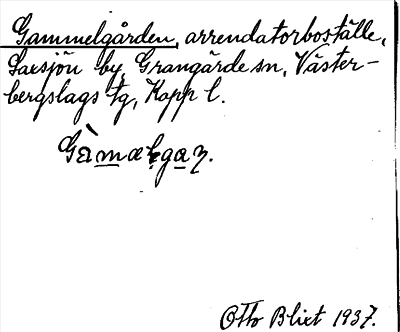 Gammelgården, arrendatorboställe,
Saxsjön by, Grangärde sn, Väster-
bergslags tg, Kopp l.
Otto Blixt 1937.